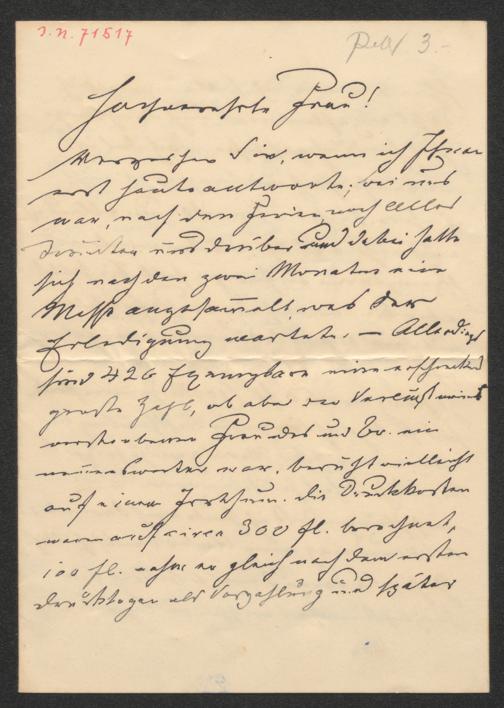 J.N. 71517
3.-
Hochverehrte Frau!
Verzeihen Sie, wenn ich Ihnen
erst heute antworte; bei uns
war, nach den Ferien, noch Alles
drunter und drüber und dabei hatte
sich nach den zwei Monaten eine
Masse angesammelt, was der
Erledigung wartete. — Allerdings
sind 426 Exemplare eine erschreckend
große Zahl, ob aber der Verlust meines
verstorbenen Freundes und Br. ein
nennenswerter war, beruht vielleicht
auf einem Irrthum. Die Druckkosten
waren auf circa 300 fl. berechnet,
100 fl. nahm er gleich nach dem ersten
als Vorzahlung und später